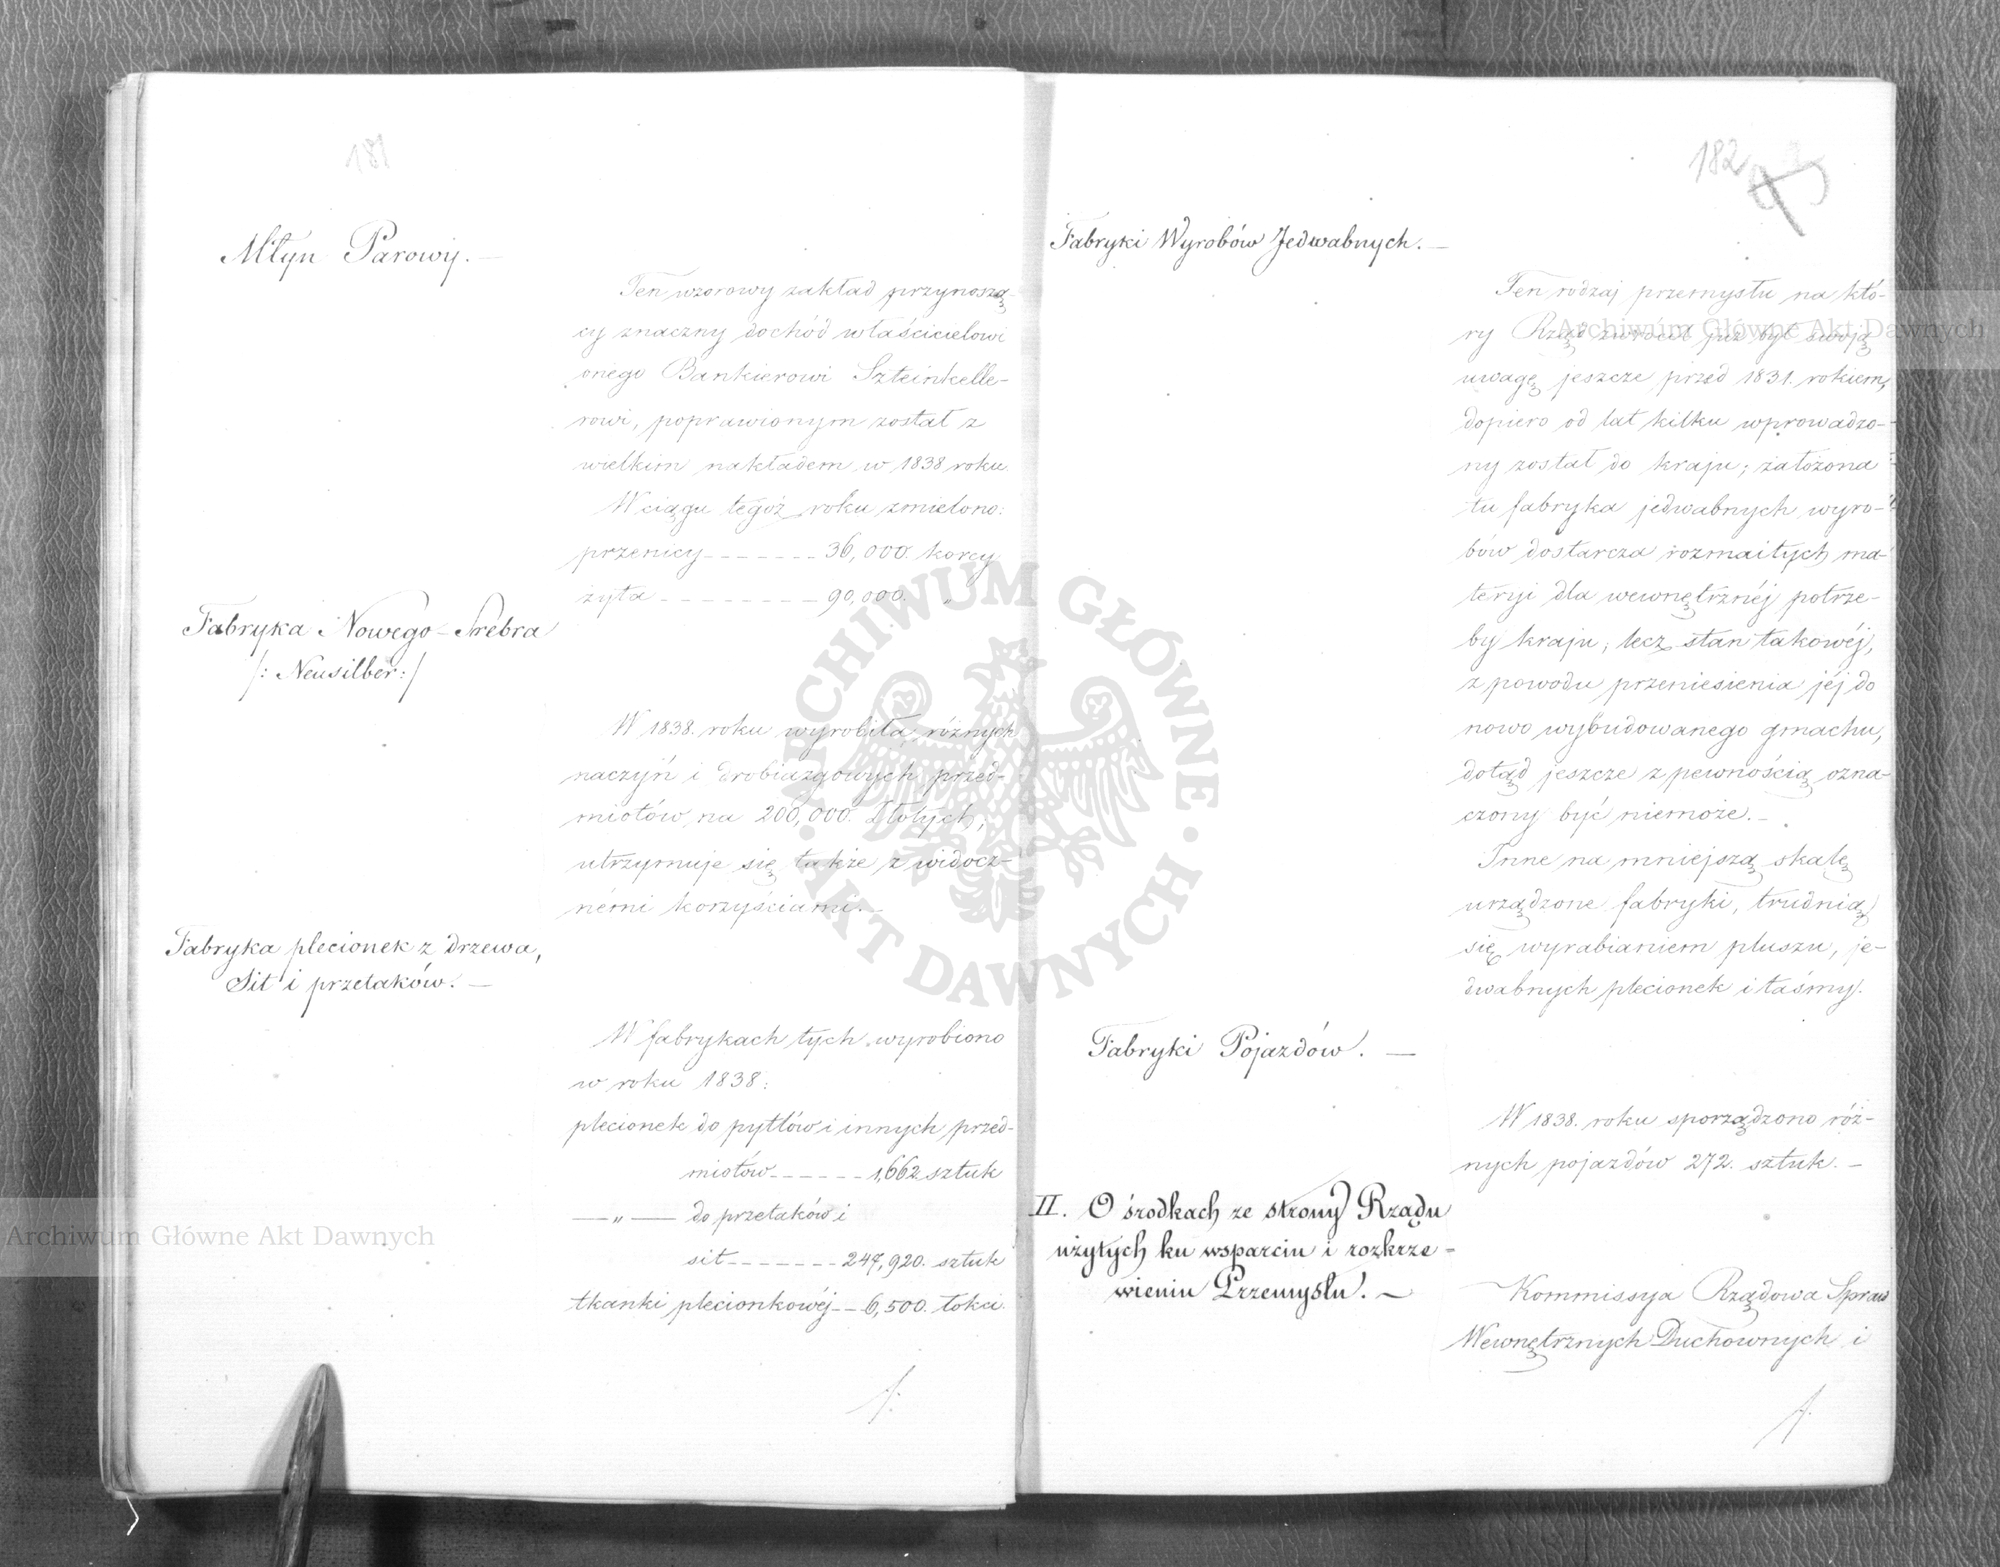 181
Młyn Parowy. —
Ten wzorowy zakład przynoszą-
cy znaczny dochód właścicielowi
onego Bankierowi Szteinkelle-
rowi, poprawionym został z
wielkim nakładem w 1838 roku.
W ciągu tegoż roku zmielono:
przenicy - - - - - - - 36,000. korcy
żyta - - - - - - - - - 90,000. "
Fabryka Nowego-Srebra
/: Neusilber :/
W 1838. roku wyrobiła różnych
naczyń i drobiazgowych przed-
miotów, na 200,000. Złotych,
utrzymuje się także z widocz-
némi korzyściami. —
Fabryka plecionek z drzewa,
Sit i przetaków. —
W fabrykach tych wyrobiono
w roku 1838:
plecionek do pytlów i innych przed-
miotów - - - - - - 1,662 sztuk
— " — do przetaków i
sit - - - - - - - 247,920. sztuk
tkanki plecionkowéj - - 6,500. łokci.
182
Fabryki Wyrobów Jedwabnych. —
Ten rodzaj przemysłu na któ-
ry Rząd zwrócił już był swoją
uwagę jeszcze przed 1831. rokiem,
dopiero od lat kilku wprowadzo-
ny został do kraju; założona
tu fabryka jedwabnych wyro-
bów dostarcza rozmaitych ma-
teryi dla wewnętrznéj potrze-
by kraju; lecz stan takowéj,
z powodu przeniesienia jéj do
nowo wybudowanego gmachu,
dotąd jeszcze z pewnością ozna-
czony być niemoże. —
Inne na mniejszą skalę
urządzone fabryki, trudnią
się wyrabianiem pluszu, je-
dwabnych plecionek i taśmy.
Fabryki Pojazdów. —
W 1838. roku sporządzono róż-
nych pojazdów 272. sztuk. —
II. O środkach ze strony Rządu
użytych ku wsparciu i rozkrze-
wieniu Przemysłu. —
Kommissya Rządowa Spraw
Wewnętrznych Duchownych i
Archiwum Główne Akt Dawnych
Archiwum Główne Akt Dawnych
ARCHIWUM GŁÓWNE · AKT DAWNYCH ·